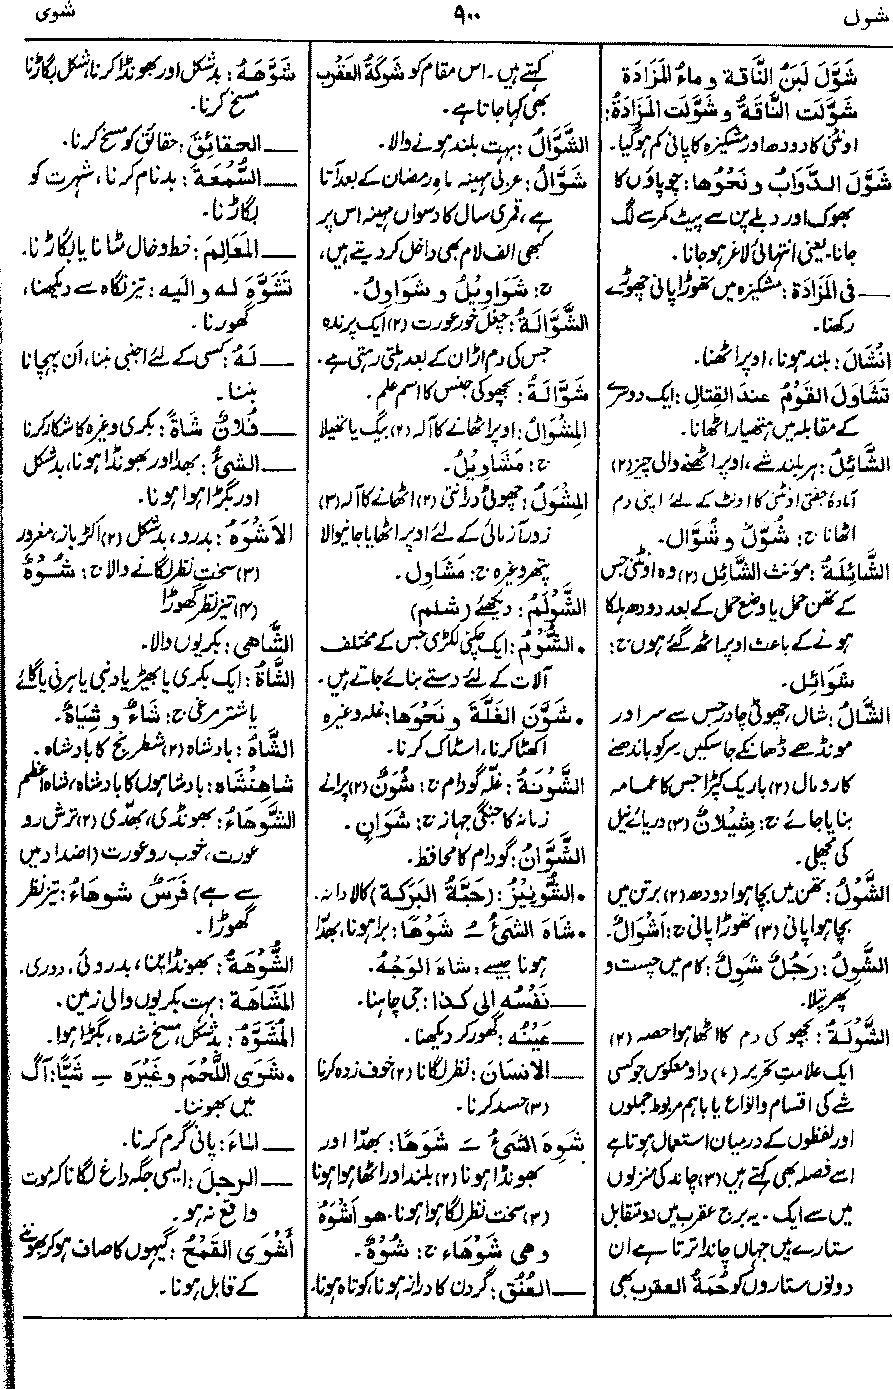 شول
۹۰۰
شوی
شَوَّلَ لَبَنُ النَّاقَةِ و ماءُ المَزَادَة
شَوَّلَت النَّاقَةُ و شَوَّلَت المَزَادَةُ:
اونٹنی کا دودھ اور مشکیزہ کا پانی کم ہوگیا۔
شَوَّلَ الدَّوَابُّ و نَحْوُها: چوپاؤں کا
بھوک اور دبلے پن سے پیٹ کمر سے لگ
جانا۔ یعنی انتہائی لاغر ہوجانا۔
ــــ فی المَزَادَة: مشکیزہ میں تھوڑا پانی چھوڑے
رکھنا۔
انْشَالَ: بلند ہونا، اوپر اٹھنا۔
تَشَاوَلَ القَوْمُ عندَ القِتالِ: ایک دوسرے
کے مقابلہ میں ہتھیار اٹھانا۔
الشَّائِلُ: ہر بلند شے، اوپر اٹھنے والی چیز (۲)
آمادۂ جفتی اونٹنی کا اونٹ کے لئے اپنی دم
اٹھانا ج: شُوَّلٌ و شُوَّال۔
الشَّائِلَةُ: مؤنث الشَّائِل (۲) وہ اونٹنی جس
کے تھن حمل یا وضع حمل کے بعد دودھ ہلکا
ہونے کے باعث اوپر اٹھ گئے ہوں ج:
شَوَائِل۔
الشَّالُ: شال، چھوٹی چادر جس سے سر اور
مونڈھے ڈھانکے جاسکیں۔ سر کو باندھنے
کا رومال (۲) باریک کپڑا جس کا عمامہ
بنایا جائے ج: شِيلَانٌ (۳) دریائے نیل
کی مچھلی۔
الشَّوْلُ: تھن میں بچا ہوا دودھ (۲) برتن میں
بچا ہوا پانی (۳) تھوڑا پانی ج: أَشْوَالٌ۔
الشَّوِلُ: رَجُلٌ شَوِلٌ: کام میں چست و
پھرتیلا۔
الشَّوْلَةُ: بچھو کی دم کا اٹھا ہوا حصہ (۲)
ایک علامتِ تحریر (،) واو معکوس جو کسی
شے کی اقسام و انواع یا باہم مربوط جملوں
اور لفظوں کے درمیان استعمال ہوتا ہے
اسے فصلہ بھی کہتے ہیں (۳) چاند کی منزلوں
میں سے ایک۔ یہ برج عقرب میں دو متقابل
ستارے ہیں جہاں چاند اترتا ہے ان
دونوں ستاروں کو حُمَةُ العقرب بھی
کہتے ہیں۔ اس مقام کو شَوْكَةُ العَقْرَب
بھی کہا جاتا ہے۔
الشَّوَّالُ: بہت بلند ہونے والا۔
شَوَّالٌ: عربی مہینہ ماہِ رمضان کے بعد آتا
ہے، قمری سال کا دسواں مہینہ اس پر
کبھی الف لام بھی داخل کردیتے ہیں،
ج: شَوَاوِيلُ و شَوَاوِلُ۔
الشَّوَّالَةُ: چغل خور عورت (۲) ایک پرندہ
جس کی دم اڑان کے بعد ہلتی رہتی ہے۔
شَوَّالَةُ: بچھو کی جنس کا اسم علم۔
المِشْوَالُ: اوپر اٹھانے کا آلہ (۲) بیگ یا تھیلا
ج: مَشَاوِيلُ۔
المِشْوَلُ: چھوٹی درانتی (۲) اٹھانے کا آلہ (۳)
زور آزمائی کے لئے اوپر اٹھایا جانیوالا
پتھر وغیرہ ج: مَشَاوِل۔
الشَّوْلَمُ: دیکھئے (شلم)
• الشُّوْمُ: ایک چکنی لکڑی جس کے مختلف
آلات کے لئے دستے بنائے جاتے ہیں۔
• شَوَّنَ الغَلَّةَ و نَحْوَها: غلہ وغیرہ
اکٹھا کرنا، اسٹاک کرنا۔
الشُّوْنَةُ: غلّہ گودام ج: شُوَنٌ (۲) پرانے
زمانہ کا جنگی جہاز ج: شَوَانٍ۔
الشَّوَّانُ: گودام کا محافظ۔
• الشُّوْنِيْزُ: (حَبَّةُ البَرَكَة) کالا دانہ۔
• شَاهَ الشَّيْءُ ـُ شَوْهًا: برا ہونا، بھدّا
ہونا جیسے: شاهَ الوَجْهُ۔
ــــ نَفْسُه الی کذا: جی چاہنا۔
ــــ عَيْنُه: گھور کر دیکھنا۔
ــــ الانسان: نظر لگانا (۲) خوف زدہ کرنا
(۳) حسد کرنا۔
شَوِهَ الشَّيْءُ ـَ شَوَهًا: بھدّا اور
بھونڈا ہونا (۲) بلند اور اٹھا ہوا ہونا
(۳) سخت نظر لگا ہوا ہونا۔ هو أَشْوَهُ
و هی شَوْهَاء ج: شُوْهٌ۔
ــــ العُنُق: گردن کا دراز ہونا، کوتاہ ہونا۔
شَوَّهَهُ: بدشکل اور بھونڈا کرنا، شکل بگاڑنا
مسخ کرنا۔
ــــ الحقائق: حقائق کو مسخ کرنا۔
ــــ السُّمْعَةَ: بدنام کرنا، شہرت کو
بگاڑنا۔
ــــ المَعَالِمَ: خط و خال مٹانا یا بگاڑنا۔
تَشَوَّهَ له و الیه: تیز نگاہ سے دیکھنا،
گھورنا۔
ــــ لَهُ: کسی کے لئے اجنبی بننا، اَن پہچانا
بننا۔
ــــ فُلَانٌ شَاةً: بکری وغیرہ کا شکار کرنا
ــــ الشیءُ: بھدا اور بھونڈا ہونا، بدشکل
اور بگڑا ہوا ہونا۔
الأَشْوَهُ: بدرو، بدشکل (۲) اکڑباز، مغرور
(۳) سخت نظر لگانے والا ج: شُوْهٌ
(۴) تیز نظر گھوڑا
الشَّاهِي: بکریوں والا۔
الشَّاةُ: ایک بکری یا بھیڑ یا دنبی یا ہرنی یا گائے
یا شتر مرغی ج: شَاءٌ و شِيَاهٌ۔
الشَّاهُ: بادشاہ (۲) شطرنج کا بادشاہ۔
شاهِنْشَاه: بادشاہوں کا بادشاہ، شاہ اعظم
الشَّوْهَاءُ: بھونڈی، بھدّی (۲) ترش رو
عورت، خوب رو عورت (اضداد میں
سے ہے) فَرَسٌ شوهَاءُ: تیز نظر
گھوڑا۔
الشُّوْهَةُ: بھونڈاپن، بدروئی، دوری۔
المَشَاهَة: بہت بکریوں والی زمین۔
المُشَوَّهُ: بدشکل، مسخ شدہ، بگڑا ہوا۔
• شَوَى اللَّحْمَ و غَيْرَه ـِ شَيًّا: آگ
میں بھوننا۔
ــــ الماءَ: پانی گرم کرنا۔
ــــ الرجلَ: ایسی جگہ داغ لگانا کہ موت
واقع نہ ہو۔
أَشْوَى القَمْحُ: گیہوں کا صاف ہو کر بھوننے
کے قابل ہونا۔